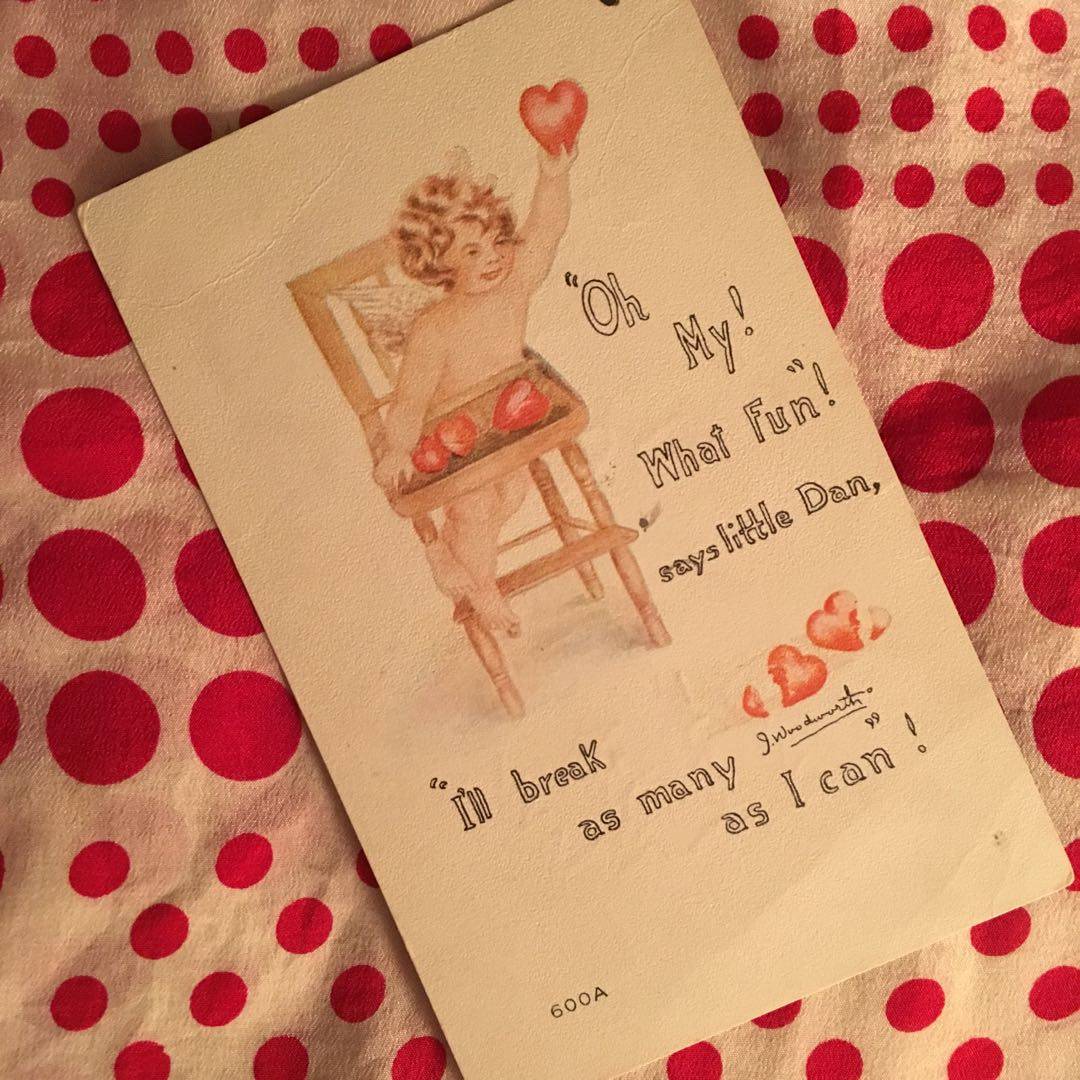 "Oh
My!
What Fun"!
says little Dan,
J. Woodworth.
"I'll break
as many
as I can"!
600A